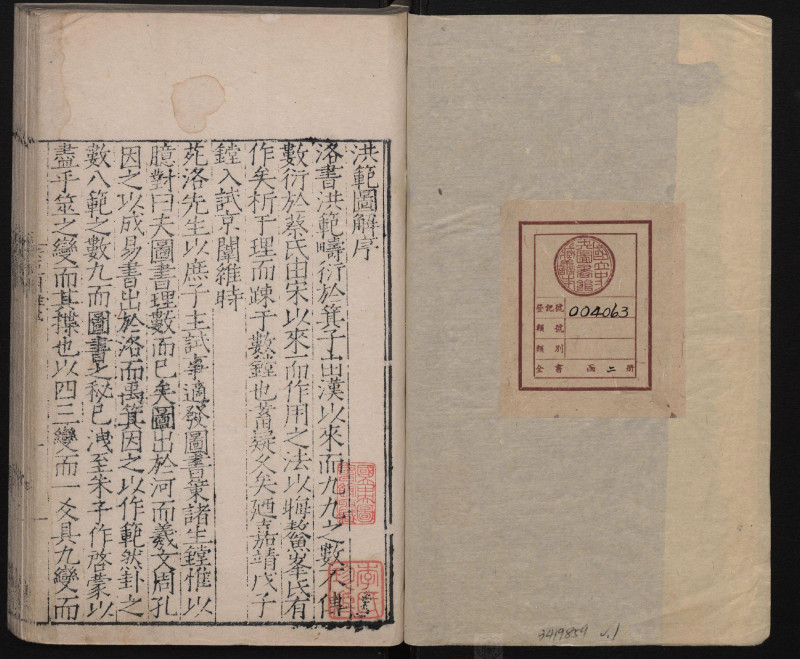 洪範圖解序
洛書洪範疇衍於箕子由漢以來而九九之數不傳
數衍於蔡氏由宋以來而作用之法以晦鰲峯氏有
作矣析于理而踈于數鏜也蓄疑久矣廼嘉靖戊子
鏜入試京闈維時
苑洛先生以庶子主試事適發圖書策諸生鏜惟以
臆對曰夫圖書理數而已矣圖出於河而羲文周孔
因之以成易書出於洛而禹箕因之以作範然卦之
數八範之數九而圖書之秘已洩至朱子作啓蒙以
盡乎筮之變而其揲也以四三變而一爻具九變而
國立中
央圖書
館藏書
登記號 004063
類號
類別
全書 函二冊
3419859 v.1